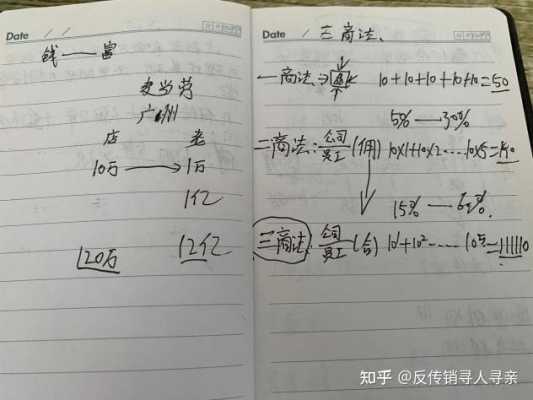 Date / /
钱——富
麦当劳
广州
店 老
10万→1万
1亿
120万 12亿
Date / 三商法、
一商法⇒ 10+10+10+10+10=50
5% — 30%
二商法:公司/员工(佣) 10×1+10×2……10×5=150
15% —
三商法:公司/员工(合) 10¹+10²……10⁵=111110
知乎 @反传销寻人寻亲